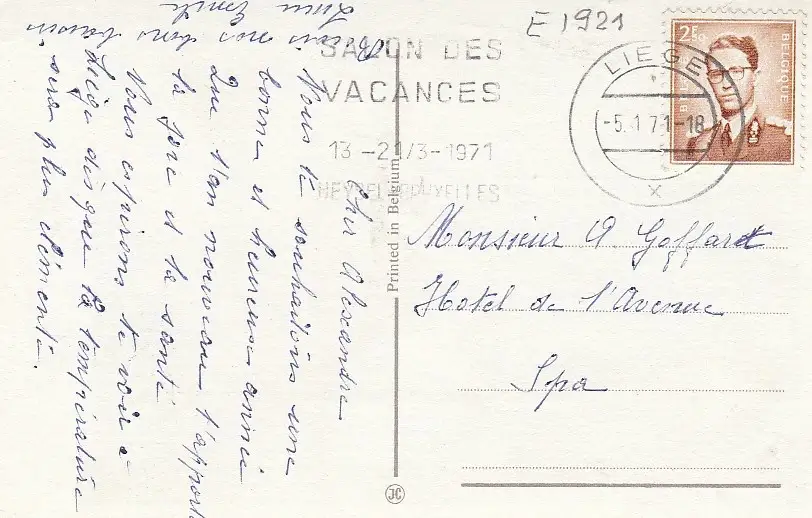 E 1921
SALON DES
VACANCES
13 - 21/3 - 1971
HEYSEL BRUXELLES
LIEGE
-5. 1 71-18
X
2F50
BELGIQUE
Printed in Belgium
JC
Monsieur A. Goffart
Hotel de l'Avenue
Spa
Cher Alexandre
Nous te souhaitons une
bonne et heureuse année
Que l'an nouveau t'apporte
la joie et la santé
Nous espérons te voir à
Liège dès que la température
sera plus clémente.
nos bons baisers
Emile